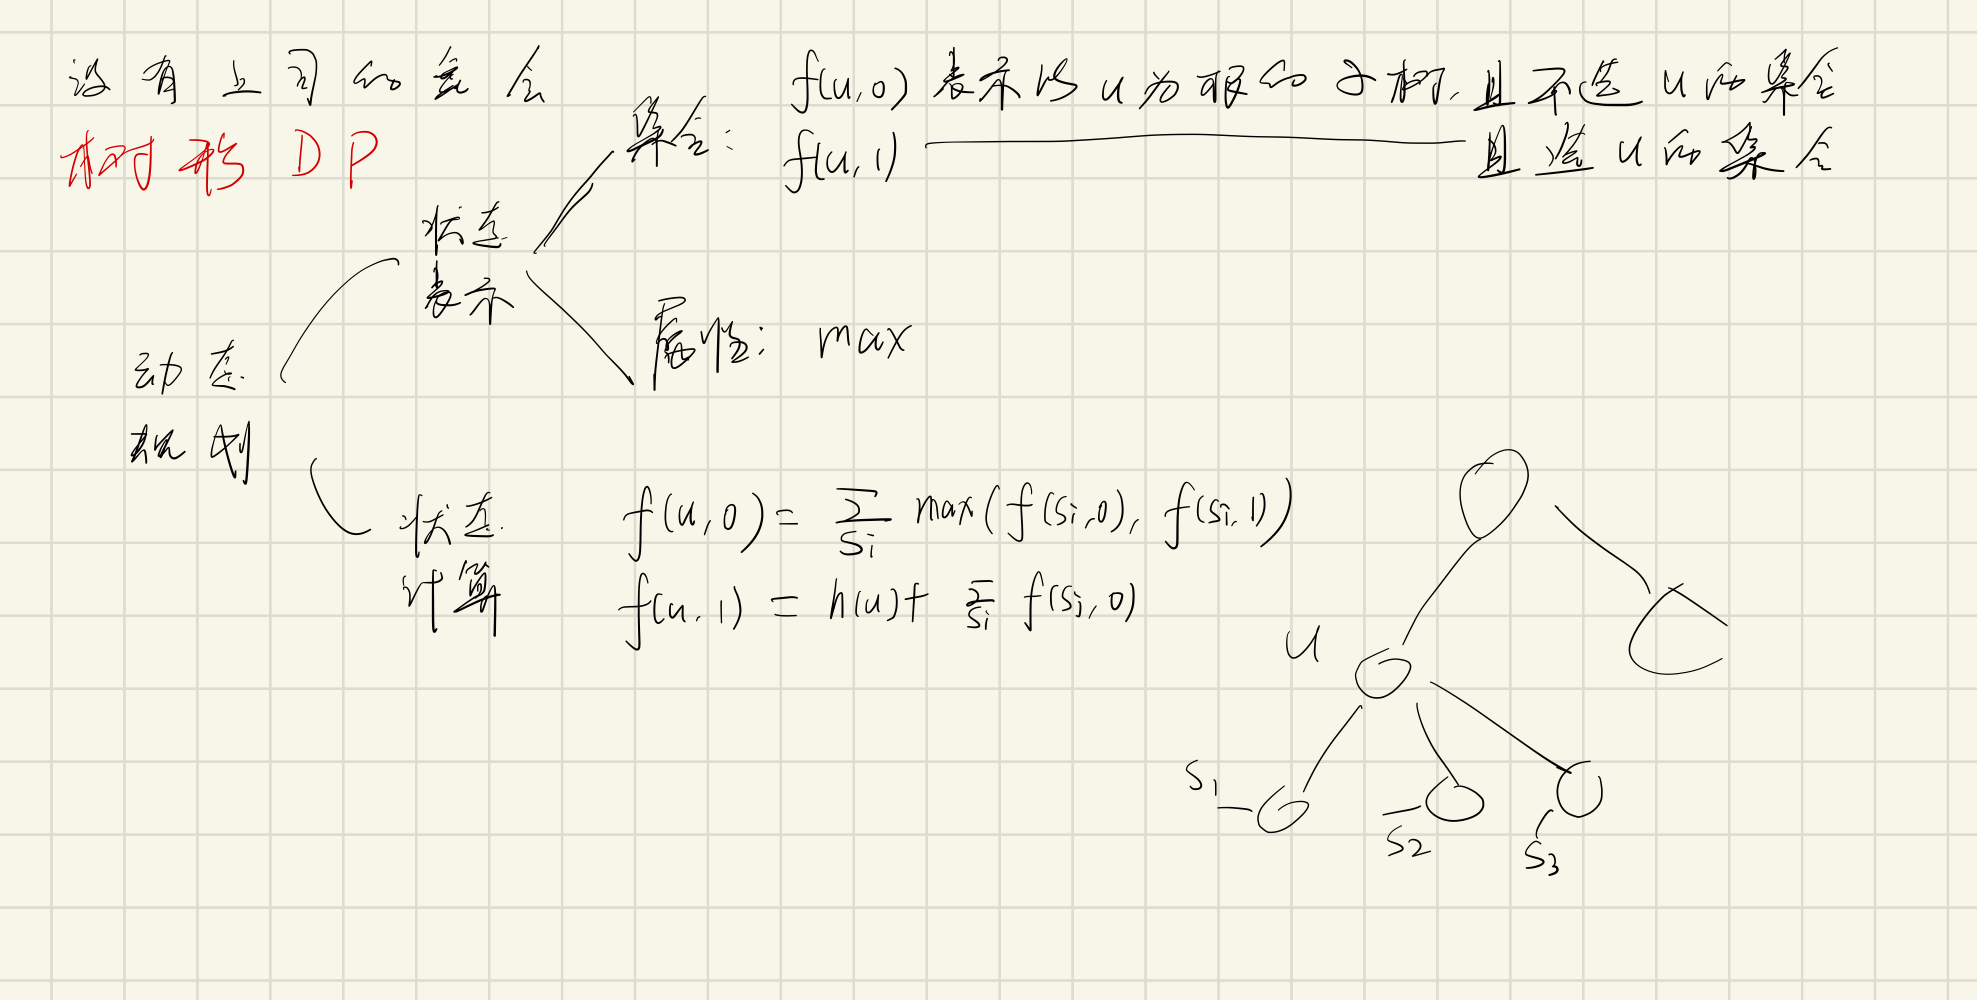 没有上司的舞会
树形DP
集合: f(u,0) 表示以u为根的子树,且不选u的集合
f(u,1) 且选u的集合
状态
表示
属性: max
动态
规划
状态
计算
f(u,0) = ∑Si max(f(Si,0), f(Si,1))
f(u,1) = h(u) + ∑Si f(Si,0)
u
S1
S2
S3